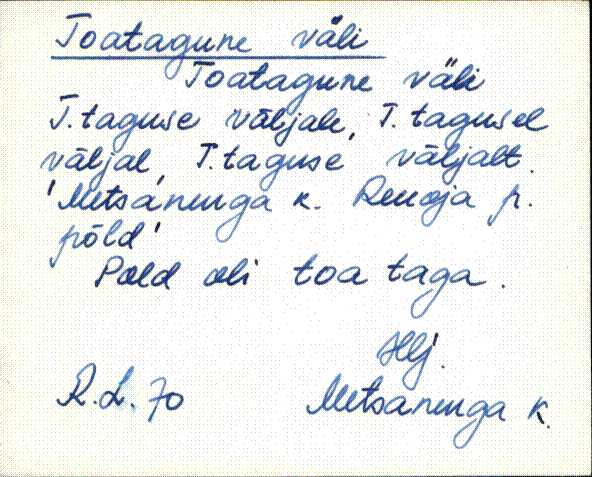 Toatagune väli
Toatagune väli
T. taguse väljale, T. tagusel
väljal, T. taguse väljalt.
'Metsanurga k. Reuoja p.
põld'
Põld oli toa taga.
Hlj.
R.L. 70 Metsanurga k.